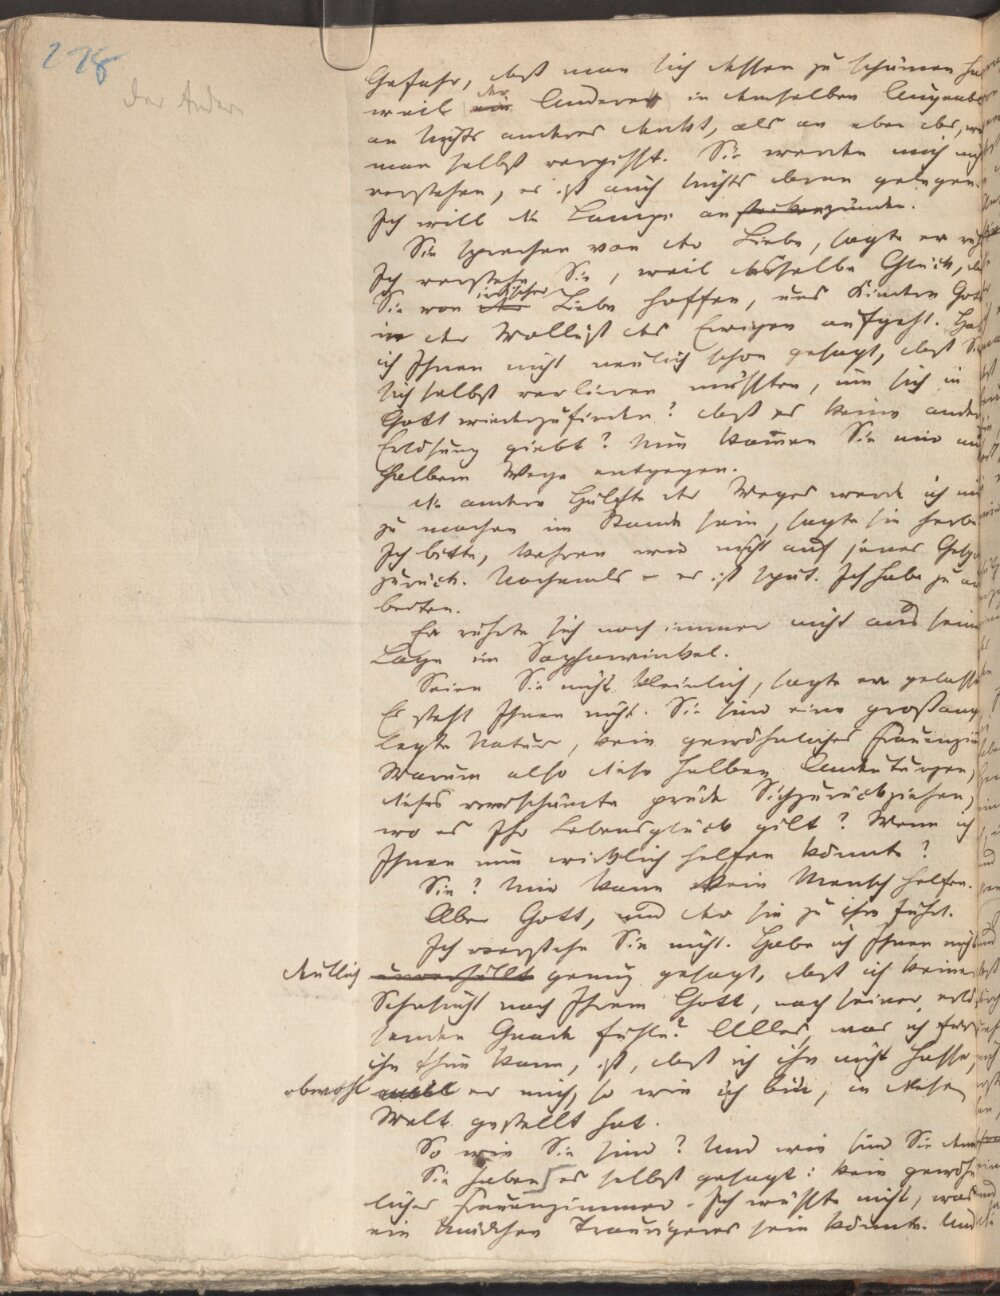 278
der Andere
Gefahr, daß man sich dessen zu schämen ha
weil ein der Anderer in demselben Augenbl
an nichts anderes denkt, als an eben das, w
man selbst vergißt. Sie werden mich nich
verstehen, es ist auch nichts daran gelegen.
Ich will die Lampe anzünden.
Sie sprechen von der Liebe, sagte er
Ich verstehe Sie, weil dasselbe Glück, da
Sie von der irdischer Liebe hoffen, uns Kindern Got
in der Wollust des Ewigen aufgeht. Hab
ich Ihnen nicht neulich schon gesagt, daß Si
sich selbst verlieren müßten, um sich in
Gott wiederzufinden? daß es keine ander
Erlösung giebt? Nun kommen Sie mir auf
halbem Wege entgegen.
Die andere Hälfte des Weges werde ich ni
zu machen im Stande sein, sagte sie herbe
Ich bitte, kehren wir nicht auf jenes Gesprä
zurück. Nochmals – es ist spät. Ich habe zu ar
beiten.
Er rührte sich noch immer nicht aus seine
Lage im Sophawinkel.
Seien Sie nicht kleinlich, sagte er gelasse
Es steht Ihnen nicht. Sie sind eine großange
legte Natur, kein gewöhnliches Frauenzim
Warum also diese halben Andeutungen,
dieses verschämte prüde Sichzurückziehen,
wo es Ihr Lebensglück gilt? Wenn ich
Ihnen nun wirklich helfen könnte?
Sie? Mir kann kein Mensch helfen.
Aber Gott, und der Sie zu ihm führt.
Ich verstehe Sie nicht. Habe ich Ihnen nicht
deutlich unverhüllt genug gesagt, daß ich keine
Sehnsucht nach Ihrem Gott, nach seiner erlö
senden Gnade fühle? Alles, was ich für
ihn thun kann, ist, daß ich ihn nicht hasse,
obwohl weil er mich, so wie ich bin, in diese
Welt gestellt hat.
So wie Sie sind? Und wie sind Sie denn
Sie haben es selbst gesagt: kein gewöhn
liches Frauenzimmer. Ich wüßte nicht, was
ein Mädchen Traurigeres sein könnte. Und